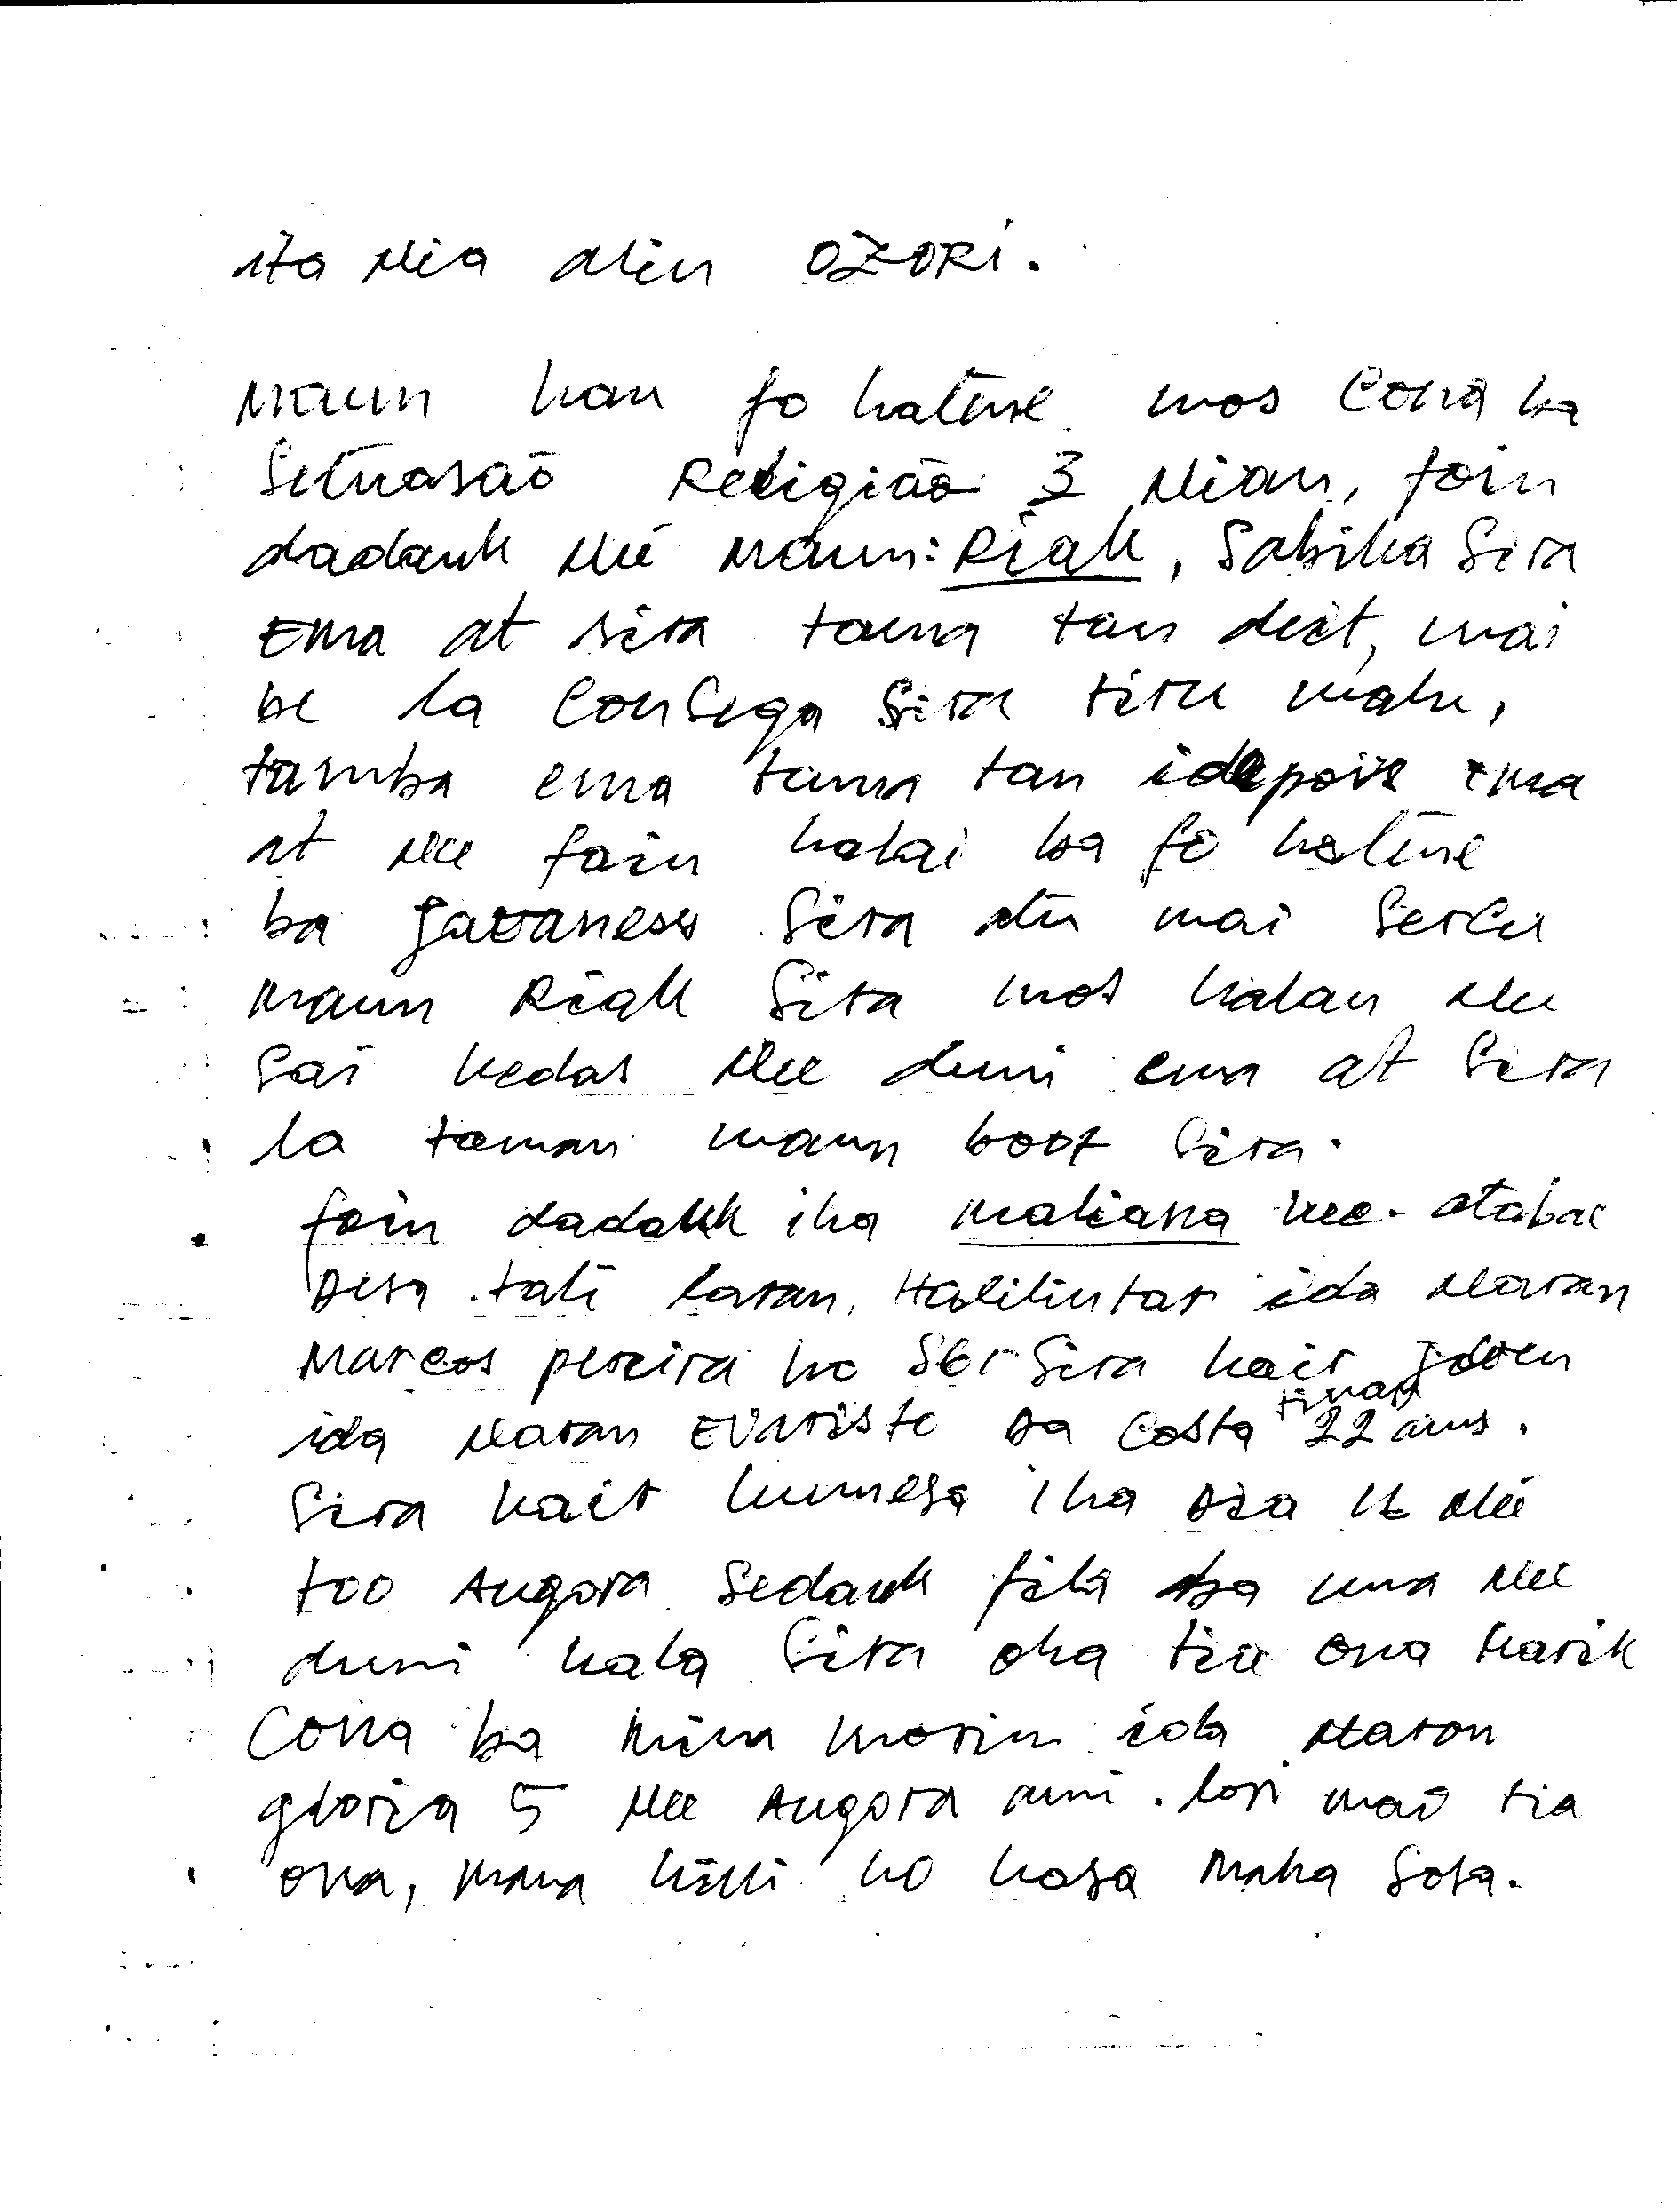 ita Nia alin OZORI.
Maun hau fo hatene mos Cona ba
Setuasaõ Religiaõ 3 Nian, foin
dadauk Né Maun: Riak, Sabika Sira
Ema at sira tama tan deit, mai
be la Consega Sira tiru malu,
tamba ema tama tan idepois ema
at Nee foin halai ba fo hatene
ba javaness Sira atu mai Sercu
Maun Riak Sira mos kalan Nee
Sai kedas Nee duni ema at Sira
la taman maun boot Sira.
foin dadauk iha Maliana Nee. Atabae
Desa tali laran, Halilintar ida Naran
Marcos pereira ho SGI Sira kair joven
ida Naran Evaristo Da Costa tinan 22 anus.
Sira kair humesa iha Dia 16 Né
too Angora Sedauk fila ba uma Nee
duni kala Sira oho tia ona karik
Cona ba Mina morin ida Naran
gloria 5 Nee Angora ami lori mai tia
ona, Mana kiki ho hasa Maka Sosa.